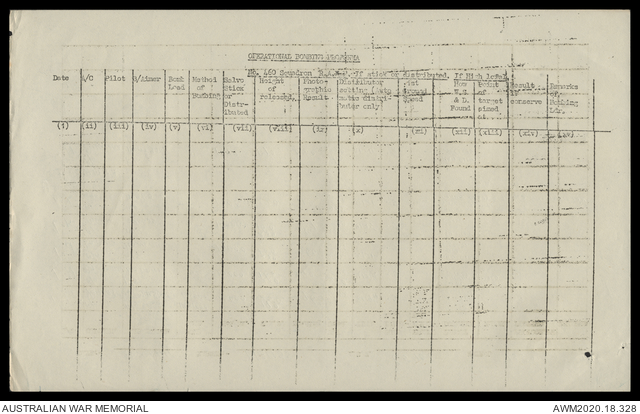 OPERATIONAL BOMBING
No. 460 Squadron R.A.A.F. If stick or distributed. If High level
Date
A/C
Pilot
A/Aimer
Bomb Load
Method of Bombing
Salvo Stick or Distributed
Height of release
Photographic Result
Distributor setting (automatic distributor only)
How W.S. & D. Found
Point of target aimed at
Result
conserve
Remarks of Bombing Ldr.
(i) (ii) (iii) (iv) (v) (vi) (vii) (viii) (ix) (x) (xi) (xii) (xiii) (xiv) (xv)
AUSTRALIAN WAR MEMORIAL
AWM2020.18.328